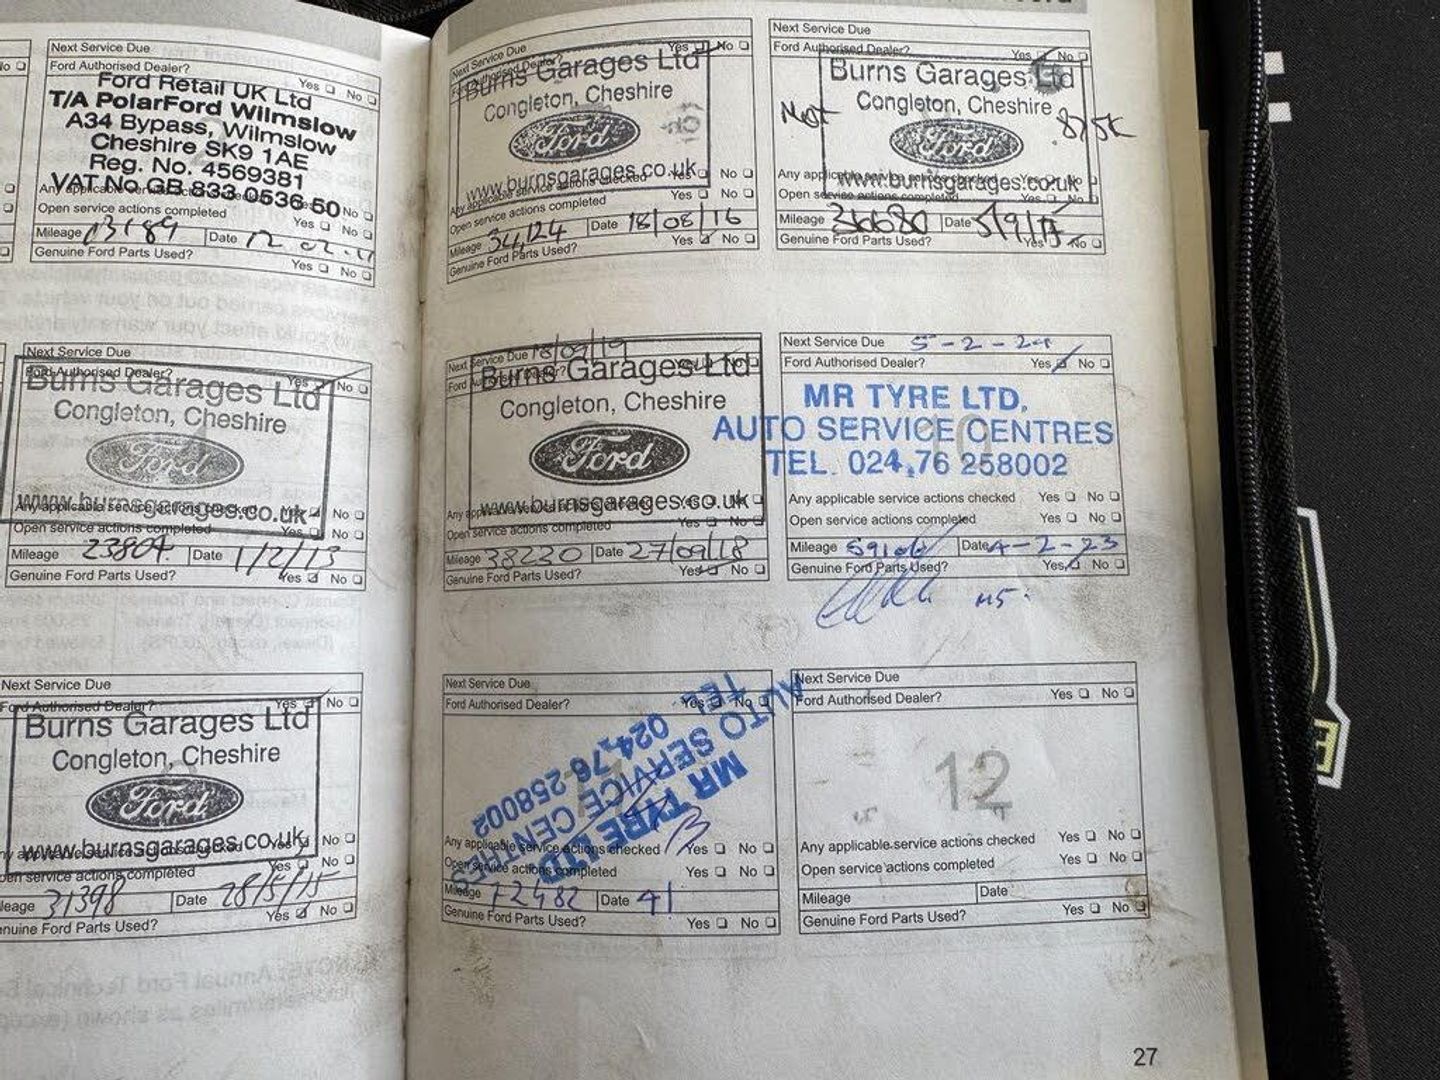 Next Service Due
Ford Authorised Dealer? Yes No
Ford Retail UK Ltd
T/A PolarFord Wilmslow
A34 Bypass, Wilmslow
Cheshire SK9 1AE
Reg. No. 4569381
VAT No GB 833 0536 50
Any applicable service actions checked No
Open service actions completed Yes No
Mileage 13189 Date 12.02.11
Genuine Ford Parts Used? Yes No
Next Service Due
Ford Authorised Dealer? Yes No
Burns Garages Ltd
Congleton, Cheshire
Ford
www.burnsgarages.co.uk
Any applicable service actions checked No
Open service actions completed Yes No
Mileage 23804 Date 1/2/13
Genuine Ford Parts Used? Yes No
Next Service Due
Ford Authorised Dealer? Yes No
Burns Garages Ltd
Congleton, Cheshire
Ford
www.burnsgarages.co.uk
ny applicable service actions checked Yes No
pen service actions completed Yes No
leage 31398 Date 28/5/15
nuine Ford Parts Used? Yes No
Next Service Due
Ford Authorised Dealer? Yes No
Burns Garages Ltd
Congleton, Cheshire
Ford
www.burnsgarages.co.uk
Any applicable service actions checked Yes No
Open service actions completed Yes No
Mileage 34,124 Date 18/08/16
Genuine Ford Parts Used? Yes No
Ford Authorised Dealer? Yes No
Burns Garages Ltd
Congleton, Cheshire
Ford
87.5K
www.burnsgarages.co.uk
Any applicable service actions checked Yes No
Open service actions completed Yes No
Mileage 36680 Date 5/9/17
Genuine Ford Parts Used? Yes No
Next Service Due 18/09/19
Ford Authorised Dealer? No
Burns Garages Ltd
Congleton, Cheshire
Ford
www.burnsgarages.co.uk
Any applicable service actions checked Yes No
Open service actions completed Yes No
Mileage 38230 Date 27/09/18
Genuine Ford Parts Used? Yes No
Next Service Due 5-2-24
Ford Authorised Dealer? Yes No
10
MR TYRE LTD.
AUTO SERVICE CENTRES
TEL. 024 76 258002
Any applicable service actions checked Yes No
Open service actions completed Yes No
Mileage Date 4-2-23
Genuine Ford Parts Used? Yes No
Next Service Due
Ford Authorised Dealer? Yes No
11
MR TYRE LTD
AUTO SERVICE CENTRES
TEL. 024 76 258002
Any applicable service actions checked Yes No
Open service actions completed Yes No
Mileage 72482 Date 4/
Genuine Ford Parts Used? Yes No
Next Service Due
Ford Authorised Dealer? Yes No
12
Any applicable service actions checked Yes No
Open service actions completed Yes No
Mileage Date
Genuine Ford Parts Used? Yes No
27